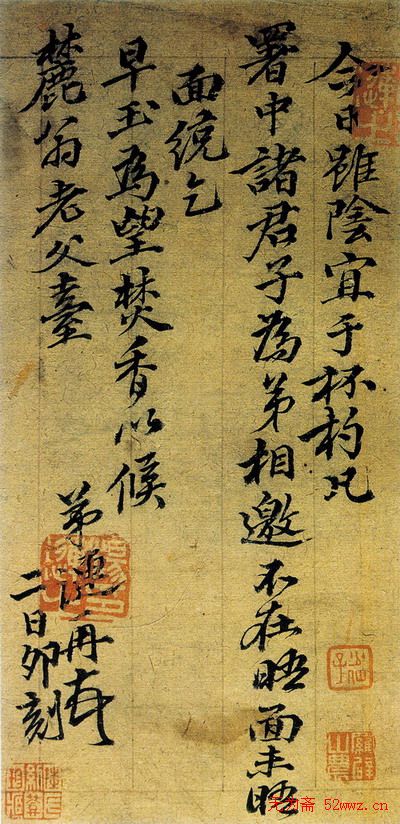 今日雖陰宜于杯杓凡
署中諸君子為弟相邀不在晤面未晤
面統乞
早玉為望焚香以候
麓翁老父臺
弟漣再
二日卯刻
52wwz.cn